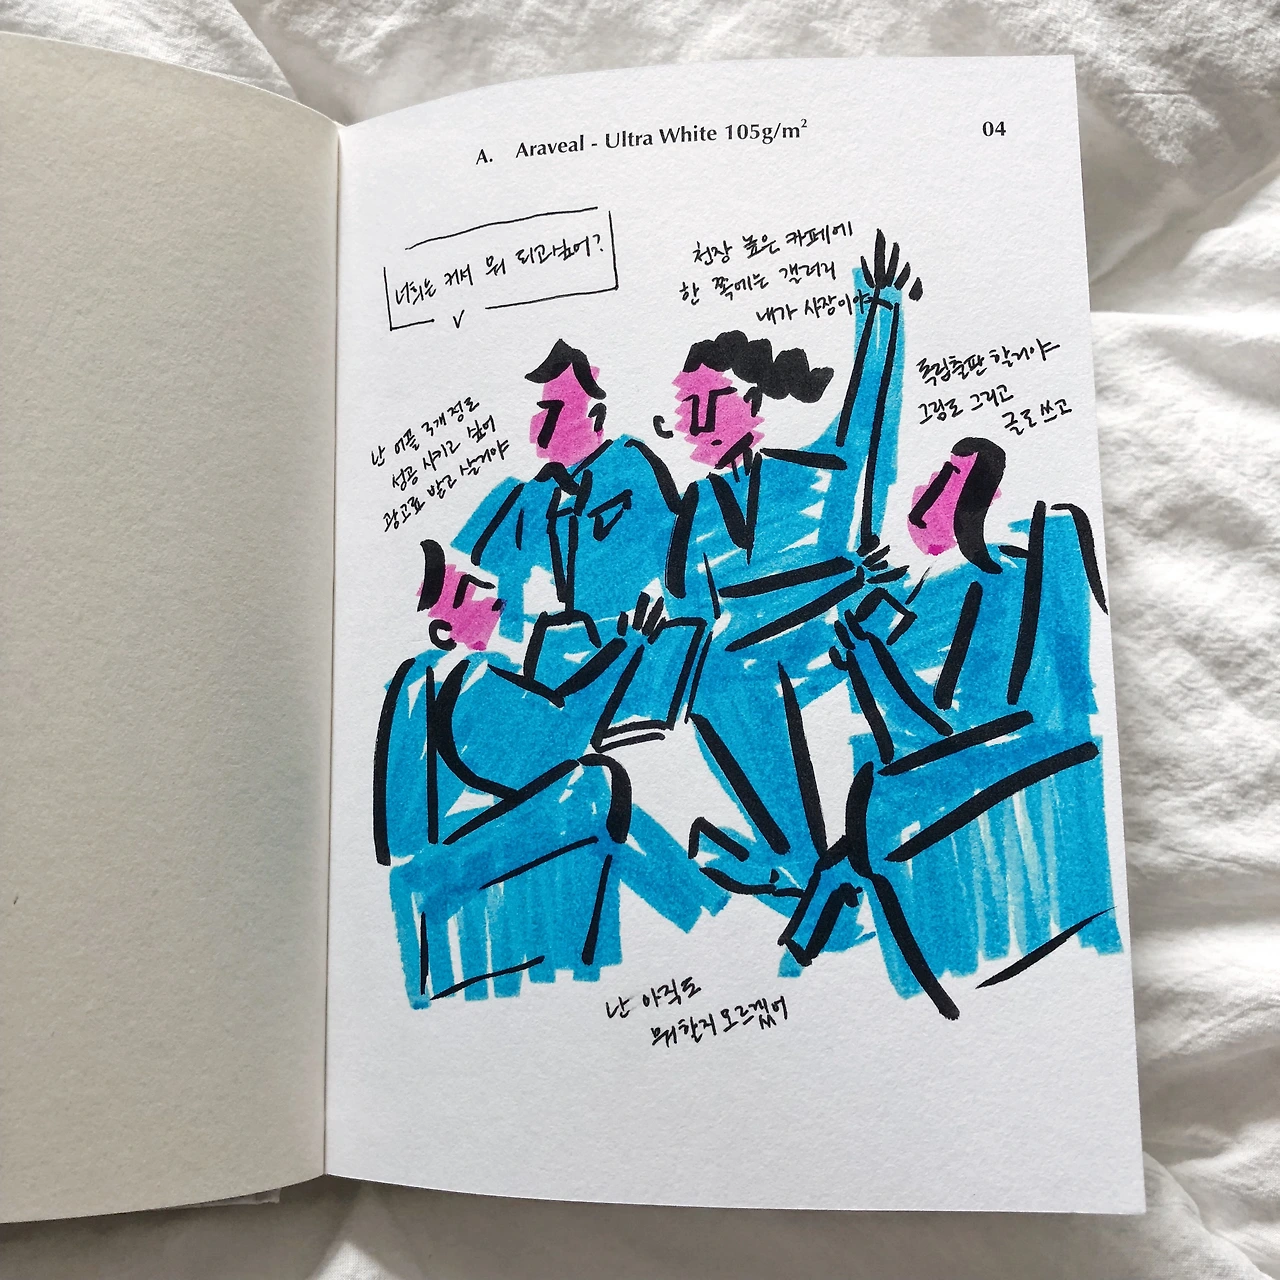 A. Araveal - Ultra White 105g/m²
04
너희는 커서 뭐 되고싶어?
천장 높은 카페에
한 쪽에는 갤러리
내가 사장이야
독립출판 할거야
그림도 그리고
글도 쓰고
난 어플 3개 정도
성공 시키고 싶어
광고료 받고 살거야
난 아직도
뭐할지 모르겠어